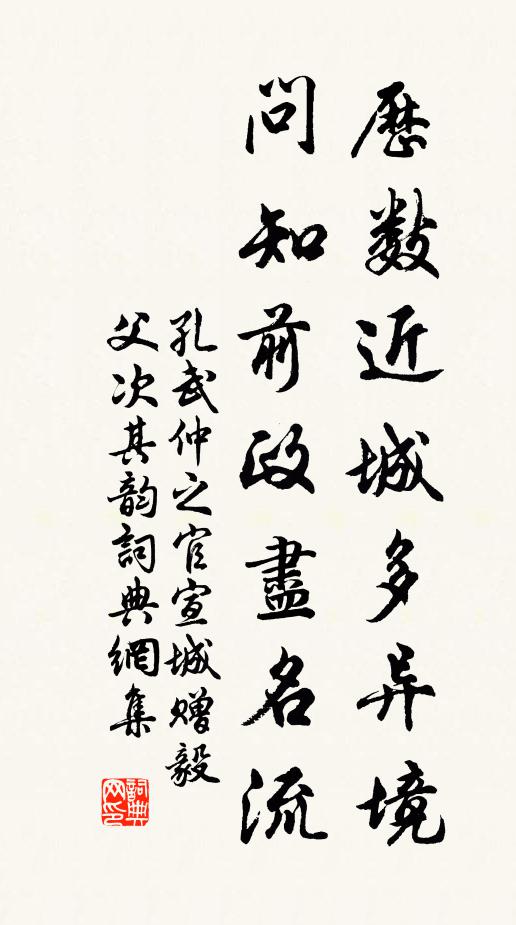 歷數近城多异境
問知前政盡名流
孔武仲之官宣城赠毅
父次其韵詞典網集
詞典
网印